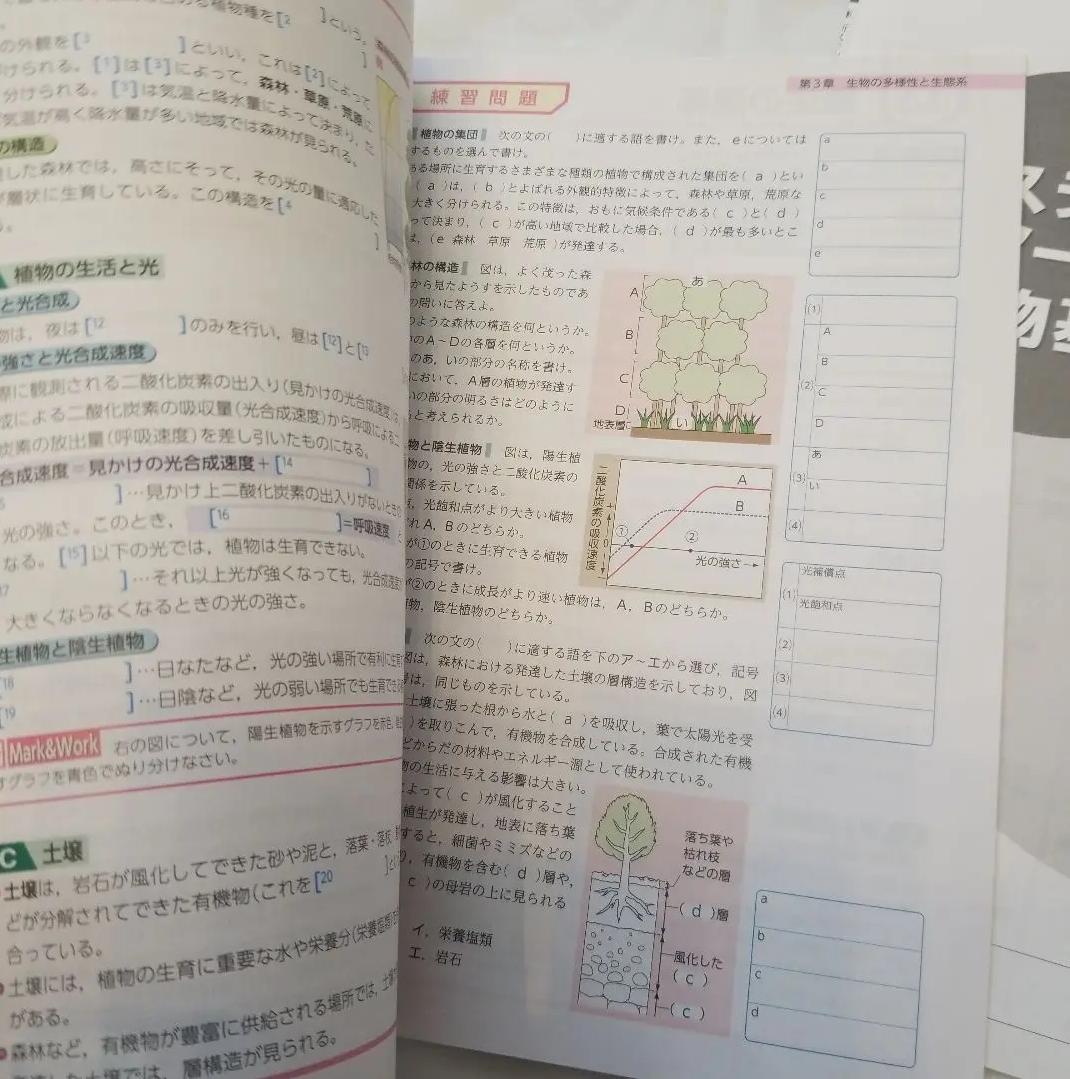 植物種を[2 ]という。
の外観を[3 ]といい，これは[2]によって
けられる。[1]は[3]によって，森林・草原・荒原に
分けられる。[3]は気温と降水量によって決まり，た
気温が高く降水量が多い地域では森林が見られる。
の構造
した森林では，高さにそって，その光の量に適応した
層状に生育している。この構造を[4
]
植物の生活と光
と光合成
物は，夜は[12 ]のみを行い，昼は[12]と[13
強さと光合成速度
際に観測される二酸化炭素の出入り(見かけの光合成速度)は，
成による二酸化炭素の吸収量(光合成速度)から呼吸による二
炭素の放出量(呼吸速度)を差し引いたものになる。
合成速度＝見かけの光合成速度＋[14 ]
]…見かけ上二酸化炭素の出入りがないときの
光の強さ。このとき， [16 ]＝呼吸速度 と
なる。[15]以下の光では，植物は生育できない。
17 ]…それ以上光が強くなっても，光合成速度が
大きくならなくなるときの光の強さ。
生植物と陰生植物
[18 ]…日なたなど，光の強い場所で有利に生育
[19 ]…日陰など，光の弱い場所でも生育できる
Mark&Work 右の図について，陽生植物を示すグラフを赤色，陰
すグラフを青色でぬり分けなさい。
C 土壌
土壌は，岩石が風化してできた砂や泥と，落葉・落枝
どが分解されてできた有機物(これを[20 ]とい
合っている。
土壌には，植物の生育に重要な水や栄養分(栄養塩類)を
がある。
森林など，有機物が豊富に供給される場所では，土壌
した土壌では，層構造が見られる。
第3章 生物の多様性と生態系
練習問題
植物の集団 次の文の( )に適する語を書け。また，eについては
するものを選んで書け。
ある場所に生育するさまざまな種類の植物で構成された集団を( a )とい
( a )は，( b )とよばれる外観的特徴によって，森林や草原，荒原な
大きく分けられる。この特徴は，おもに気候条件である( c )と( d )
って決まり，( c )が高い地域で比較した場合，( d )が最も多いとこ
は，(e 森林 草原 荒原 )が発達する。
a
b
c
d
e
林の構造 図は，よく茂った森
から見たようすを示したものであ
の問いに答えよ。
のような森林の構造を何というか。
のA～Dの各層を何というか。
のあ，いの部分の名称を書け。
において，A層の植物が発達す
いの部分の明るさはどのように
ると考えられるか。
A
B
C
D
地表層
あ
い
(1)
(2)
A
B
C
D
(3)
あ
い
(4)
物と陰生植物 図は，陽生植
物の，光の強さと二酸化炭素の
関係を示している。
点，光飽和点がより大きい植物
れA，Bのどちらか。
が①のときに生育できる植物
の記号で書け。
が②のときに成長がより速い植物は，A，Bのどちらか。
植物，陰生植物のどちらか。
二酸化炭素の吸収速度
＋
0
－
A
B
①
②
光の強さ→
(1)
光補償点
光飽和点
(2)
(3)
(4)
次の文の( )に適する語を下のア～エから選び，記号
図は，森林における発達した土壌の層構造を示しており，図
号は，同じものを示している。
土壌に張った根から水と( a )を吸収し，葉で太陽光を受
)を取りこんで，有機物を合成している。合成された有機
どからだの材料やエネルギー源として使われている。
物の生活に与える影響は大きい。
よって( c )が風化すること
植生が発達し，地表に落ち葉
すると，細菌やミミズなどの
り，有機物を含む( d )層や，
c )の母岩の上に見られる
イ．栄養塩類
エ．岩石
落ち葉や
枯れ枝
などの層
( d )層
風化した
( c )
( c )
a
b
c
d